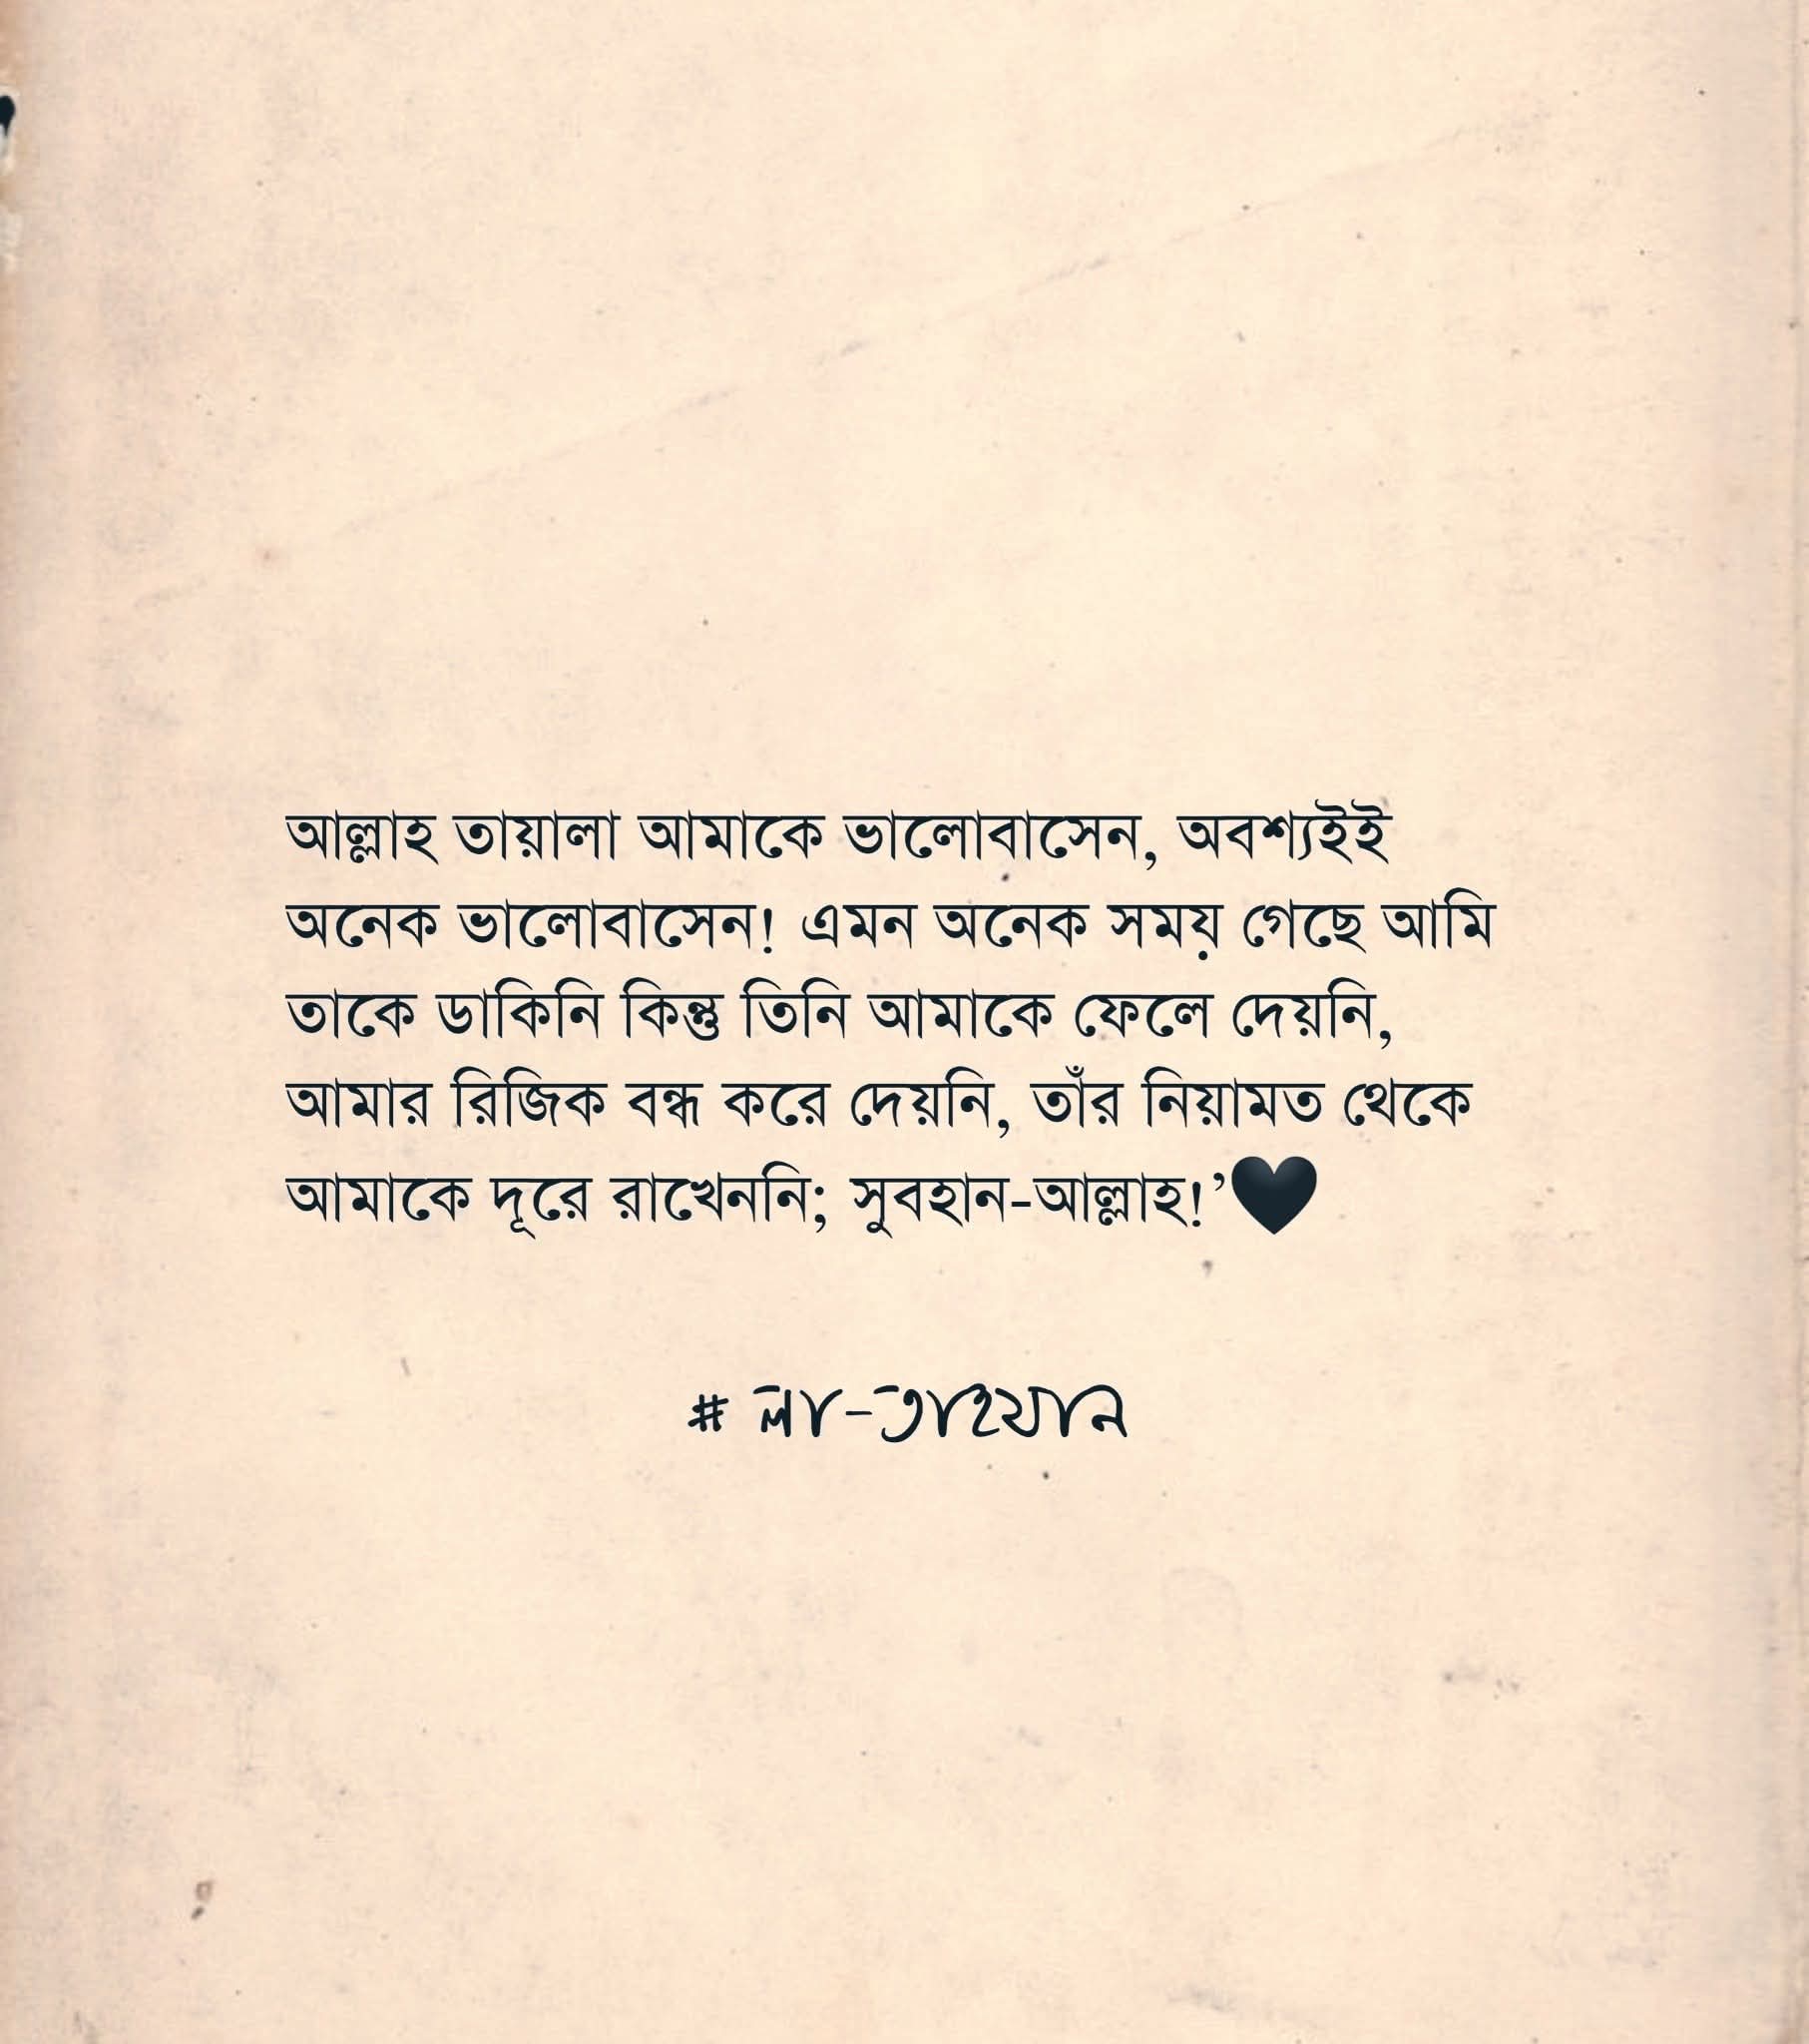 আল্লাহ তায়ালা আমাকে ভালোবাসেন, অবশ্যইই
অনেক ভালোবাসেন! এমন অনেক সময় গেছে আমি
তাকে ডাকিনি কিন্তু তিনি আমাকে ফেলে দেয়নি,
আমার রিজিক বন্ধ করে দেয়নি, তাঁর নিয়ামত থেকে
আমাকে দূরে রাখেননি; সুবহান-আল্লাহ!’🖤
# লা-তাহযান